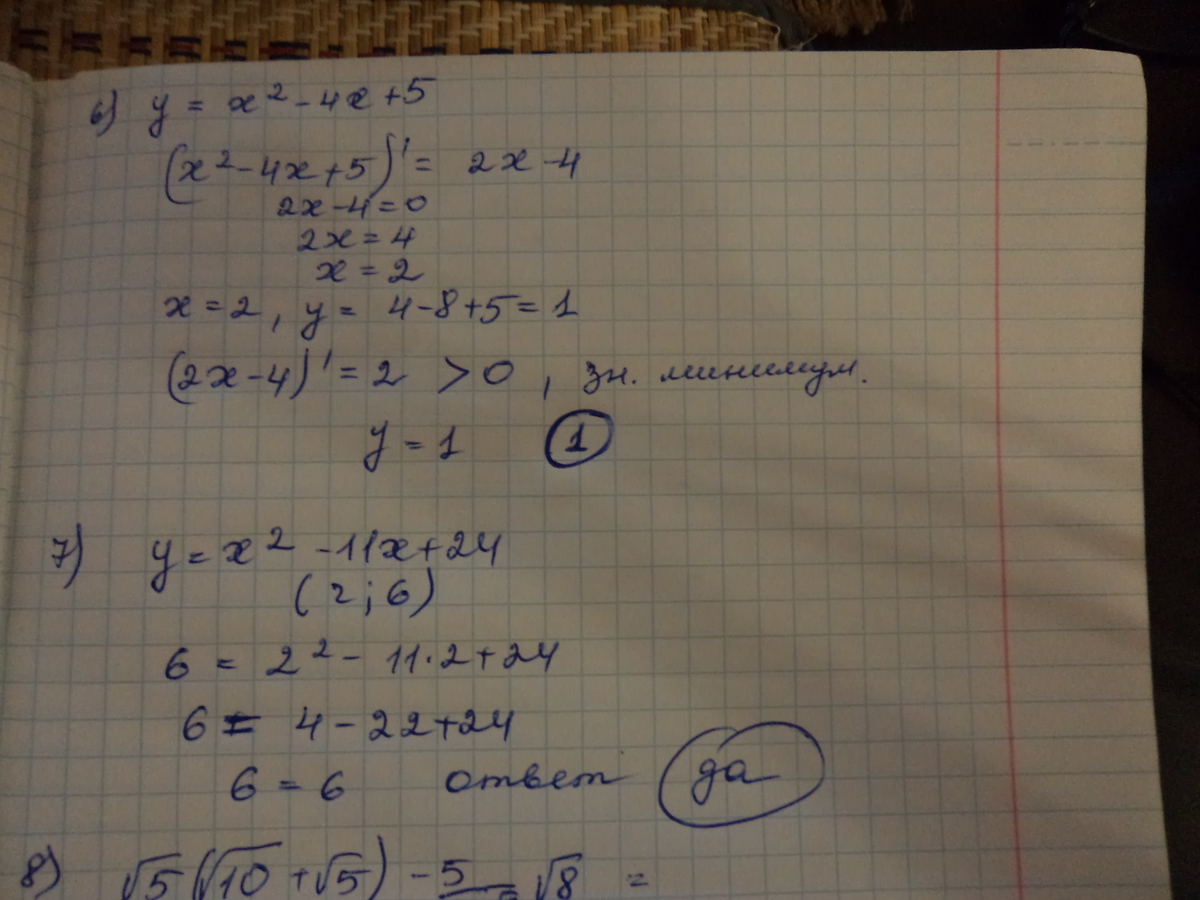 6) y = x² - 4x + 5
(x² - 4x + 5)' = 2x - 4
2x - 4 = 0
2x = 4
x = 2
x = 2, y = 4 - 8 + 5 = 1
(2x - 4)' = 2 > 0, зн. минимум.
y = 1 1
7) y = x² - 11x + 24
(2; 6)
6 = 2² - 11·2 + 24
6 = 4 - 22 + 24
6 = 6 ответ да
8) √5(√10 + √5) - 5 √8 =